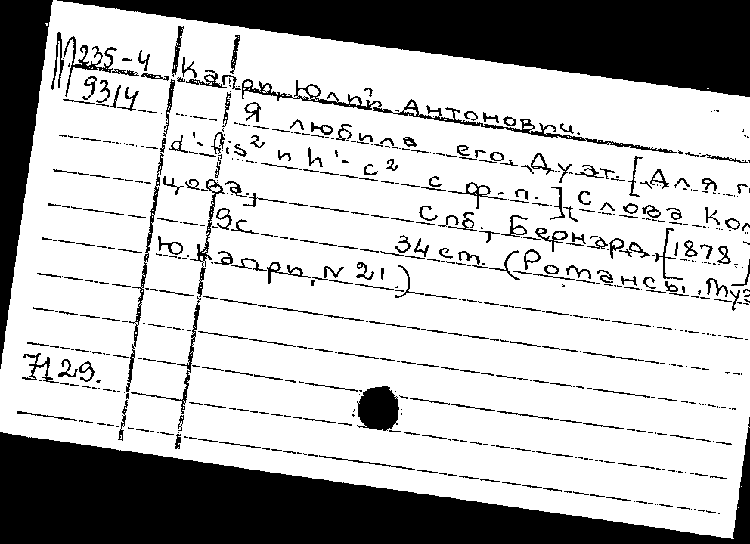 М 235-4
9314
Капри, Юлий Антонович.
Я любила его. Дуэт [Для г
d'-fis² и h'-c² с ф.-п.]. Слова Кол
цова,
Спб, Бернард, [1878]
9с 34 см. (Романсы. Муз
Ю Капри, N 21)
7129.